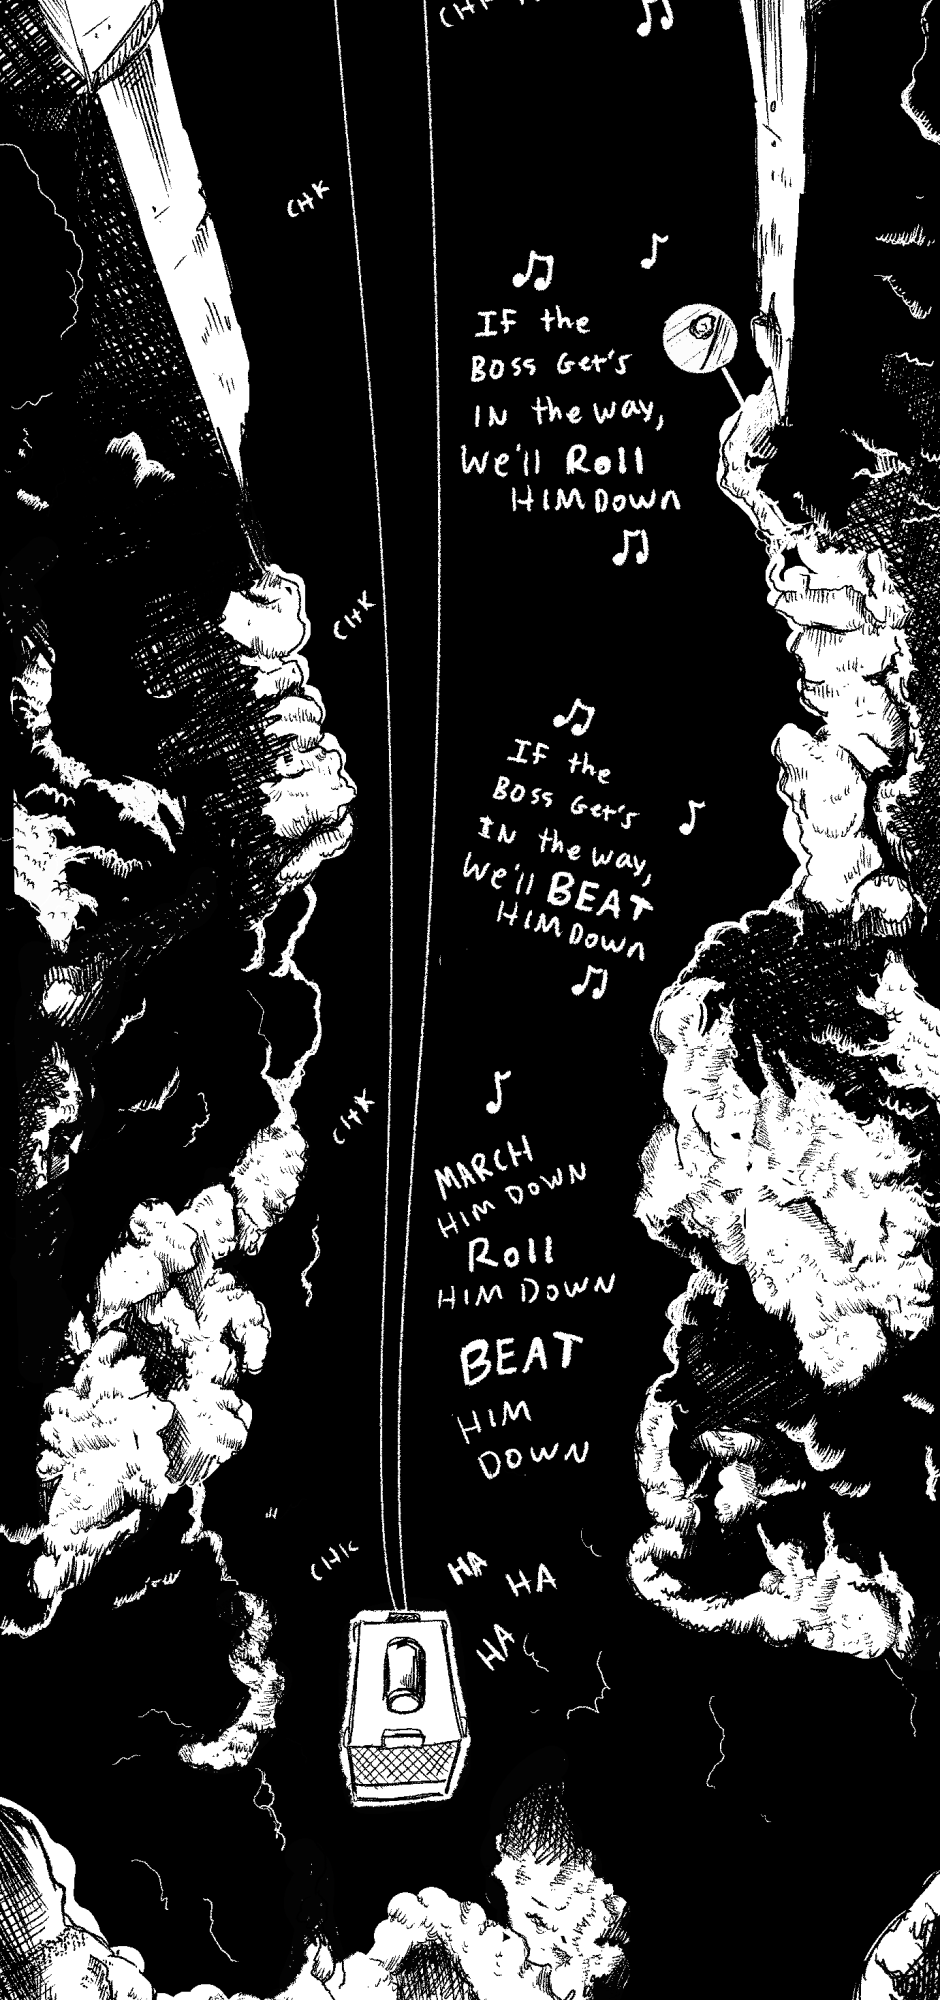 CHK
IF the
Boss Get's
IN the way,
We'll Roll
HIM DOWN
CHK
IF the
Boss Get's
IN the way,
We'll BEAT
HIM DOWN
CHK
MARCH
HIM DOWN
Roll
HIM DOWN
BEAT
HIM
DOWN
CHK
HA
HA
HA